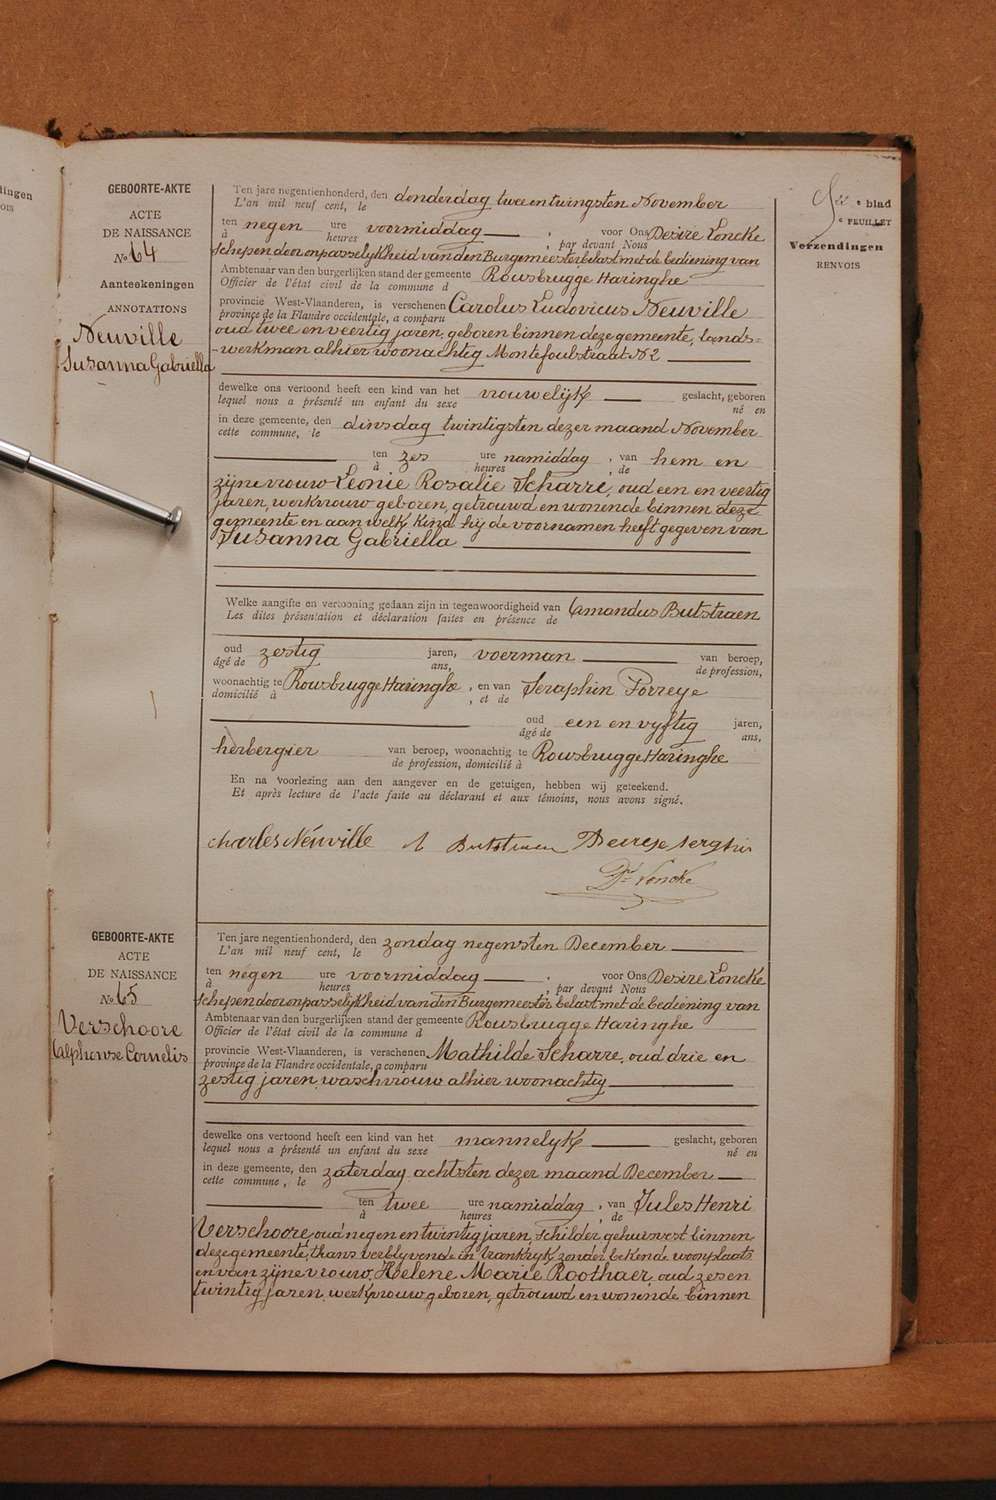 GEBOORTE-AKTE
ACTE
DE NAISSANCE
No 64
Aanteekeningen
ANNOTATIONS
Neuville
Susanna Gabriella
Ten jare negentienhonderd, den donderdag twee en twingsten November
L'an mil neuf cent, le
ten negen ure voormiddag, voor Ons Desire Loncke
à heures , par devant Nous
schepen door onpasselykheid van den Burgemeester belast met de bediening van
Ambtenaar van den burgerlijken stand der gemeente Rousbrugge Haringhe
Officier de l'état civil de la commune d
provincie West-Vlaanderen, is verschenen Carolus Ludovicus Neuville
province de la Flandre occidentale, a comparu
oud twee en veertig jaren, geboren binnen deze gemeente, lands=
-werkman alhier woonachtig straat N 2
dewelke ons vertoond heeft een kind van het vrouwelyk geslacht, geboren
lequel nous a présenté un enfant du sexe né en
in deze gemeente, den dinsdag twintigsten dezer maand November
cette commune, le
ten zes ure namiddag, van hem en
à heures , de
zijne vrouw Leonie Rosalie Scharre, oud een en veertig
jaren, werkvrouw geboren, getrouwd en wonende binnen deze
gemeente en aan welk kind hy de voornamen heeft gegeven van
Susanna Gabriella
Welke aangifte en vertooning gedaan zijn in tegenwoordigheid van Amandus Butstraen
Les dites présentation et déclaration faites en présence de
oud zestig jaren, voerman van beroep,
âgé de ans, de profession,
woonachtig te Rousbrugge Haringhe, en van Seraphin
domicilié à , et de
oud een en vyftig jaren,
âgé de ans,
herbergier van beroep, woonachtig te Rousbrugge Haringhe
de profession, domicilié à
En na voorlezing aan den aangever en de getuigen, hebben wij geteekend.
Et après lecture de l'acte faite au déclarant et aux témoins, nous avons signé.
charles Neuville A Butstraen
Dre Loncke
blad
e FEUILLET
Verzendingen
RENVOIS
GEBOORTE-AKTE
ACTE
DE NAISSANCE
No 65
Verschoore
Alphonse Cornelis
Ten jare negentienhonderd, den zondag negensten December
L'an mil neuf cent, le
ten negen ure voormiddag, voor Ons Desire Loncke
à heures , par devant Nous
schepen door onpasselykheid van den Burgemeester belast met de bediening van
Ambtenaar van den burgerlijken stand der gemeente Rousbrugge Haringhe
Officier de l'état civil de la commune d
provincie West-Vlaanderen, is verschenen Mathilde Scharre, oud drie en
province de la Flandre occidentale, a comparu
zestig jaren, waschvrouw alhier woonachtig
dewelke ons vertoond heeft een kind van het mannelyk geslacht, geboren
lequel nous a présenté un enfant du sexe né en
in deze gemeente, den zaterdag achtsten dezer maand December
cette commune, le
ten twee ure namiddag, van Jules Henri
à heures , de
Verschoore, oud negen en twintig jaren, schilder gehuisvest binnen
deze gemeente, thans verblyvende in Vrankryk zonder bekende woonplaats
en van zijne vrouw, Helene Marie Roothaer, oud zes en
twintig jaren, werkvrouw, geboren, getrouwd en wonende binnen